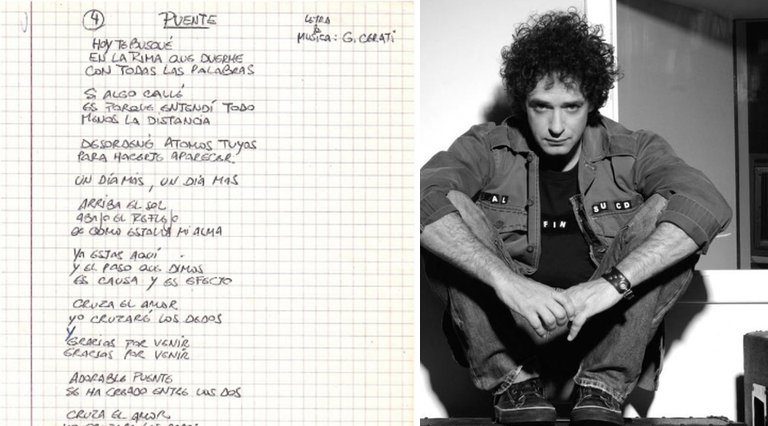 4 PUENTE
LETRA
&
MUSICA: G. CERATI
HOY TE BUSQUÉ
EN LA RIMA QUE DUERME
CON TODAS LAS PALABRAS
SI ALGO CALLÉ
ES PORQUE ENTENDÍ TODO
MENOS LA DISTANCIA
DESORDENÉ ATOMOS TUYOS
PARA HACERTE APARECER
UN DIA MAS, UN DIA MAS
ARRIBA EL SOL
ABAJO EL REFLEJO
DE COMO ESTALLA MI ALMA
YA ESTAS AQUÍ
Y EL PASO QUE DIMOS
ES CAUSA Y ES EFECTO
CRUZA EL AMOR
YO CRUZARÉ LOS DEDOS
Y
GRACIAS POR VENIR
GRACIAS POR VENIR
ADORABLE PUENTE
SE HA CREADO ENTRE LOS DOS
CRUZA EL AMOR
AL
FIN
SU CD